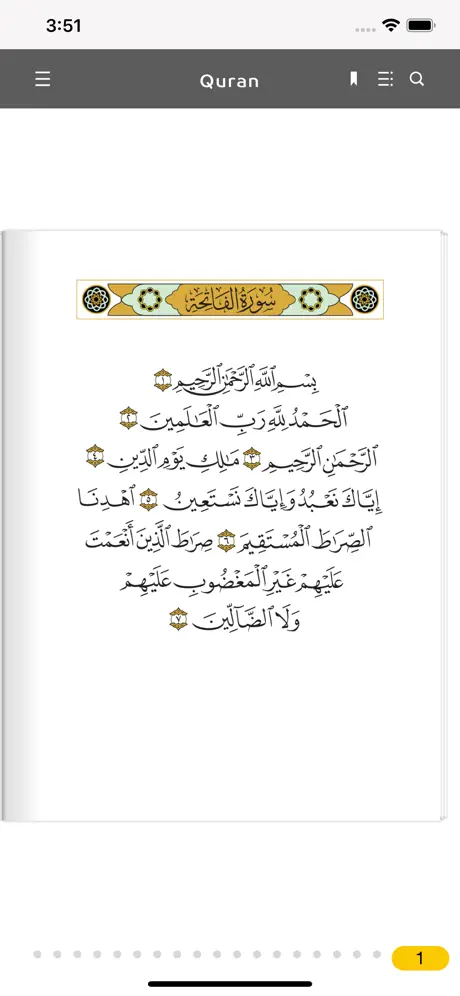 3:51
Quran
سُورَةُ الْفَاتِحَةِ
بِسْمِ اللَّهِ الرَّحْمَٰنِ الرَّحِيمِ ١
الْحَمْدُ لِلَّهِ رَبِّ الْعَالَمِينَ ٢
الرَّحْمَٰنِ الرَّحِيمِ ٣ مَالِكِ يَوْمِ الدِّينِ ٤
إِيَّاكَ نَعْبُدُ وَإِيَّاكَ نَسْتَعِينُ ٥ اهْدِنَا
الصِّرَاطَ الْمُسْتَقِيمَ ٦ صِرَاطَ الَّذِينَ أَنْعَمْتَ
عَلَيْهِمْ غَيْرِ الْمَغْضُوبِ عَلَيْهِمْ
وَلَا الضَّآلِّينَ ٧
1